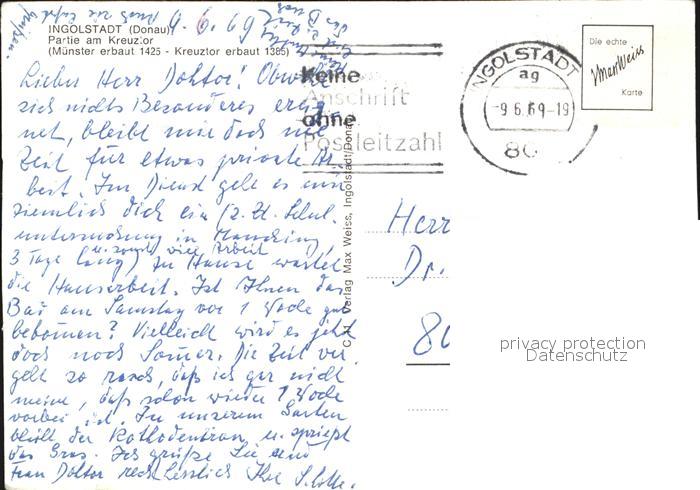 INGOLSTADT (Donau)
Partie am Kreuztor
(Münster erbaut 1425 - Kreuztor erbaut 1385)
9.6.69
Lieber Herr Doktor! Obwohl
sich nichts Besonderes ereig
net, bleibt mir doch nie
Zeit für etwas private Ar
beit. Im Dienst geht es mir
ziemlich dick ein (z. Zt. Schul.
untersuchung in Manching,
u. sonst viel Arbeit
3 Tage lang) zu Hause wartet
die Hausarbeit. Ist Ihnen das
Bad am Samstag vor 1 Woche gut
bekommen? Vielleicht wird es jetzt
doch noch Sommer. Die Zeit ver
geht so rasch, daß ich gar nicht
meine, daß schon wieder 1 Woche
vorbei ist. In unserem Garten
blüht der u. sprießt
das Gras. Ich grüße Sie und
Frau Doktor recht herzlich Ihre
Keine
Anschrift
ohne
Postleitzahl
INGOLSTADT
ag
-9.6.69-19
80
Die echte
Max Weiss
Karte
Verlag Max Weiss, Ingolstadt/Donau
Herr
Dr.
80
privacy protection
Datenschutz